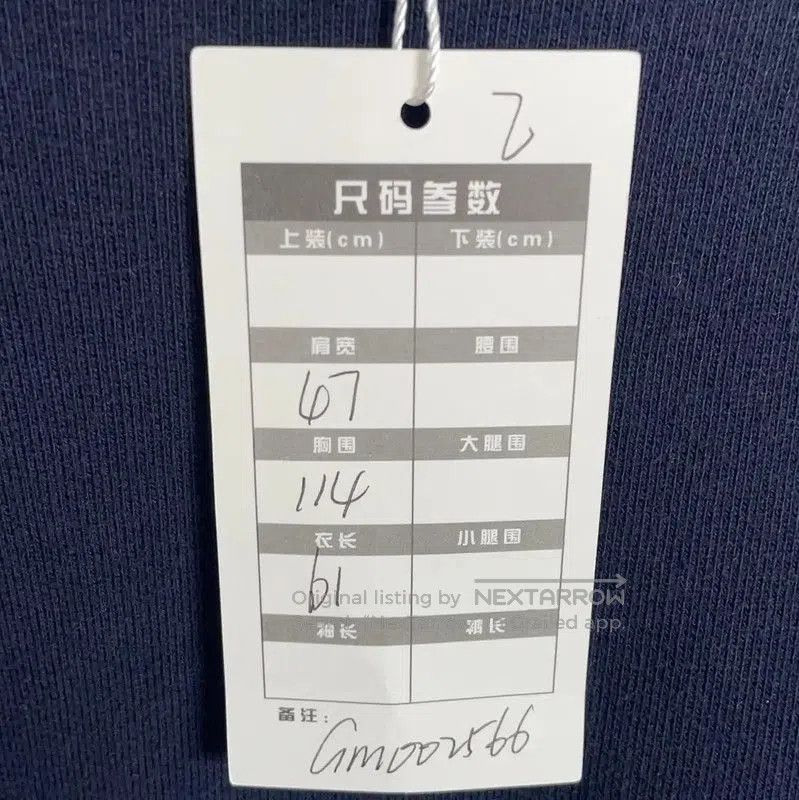 2
尺码参数
上装(cm) 下装(cm)
肩宽 腰围
67
胸围 大腿围
114
衣长 小腿围
61
Original listing by NEXTARROW
袖长 裤长
备注:
GM002566